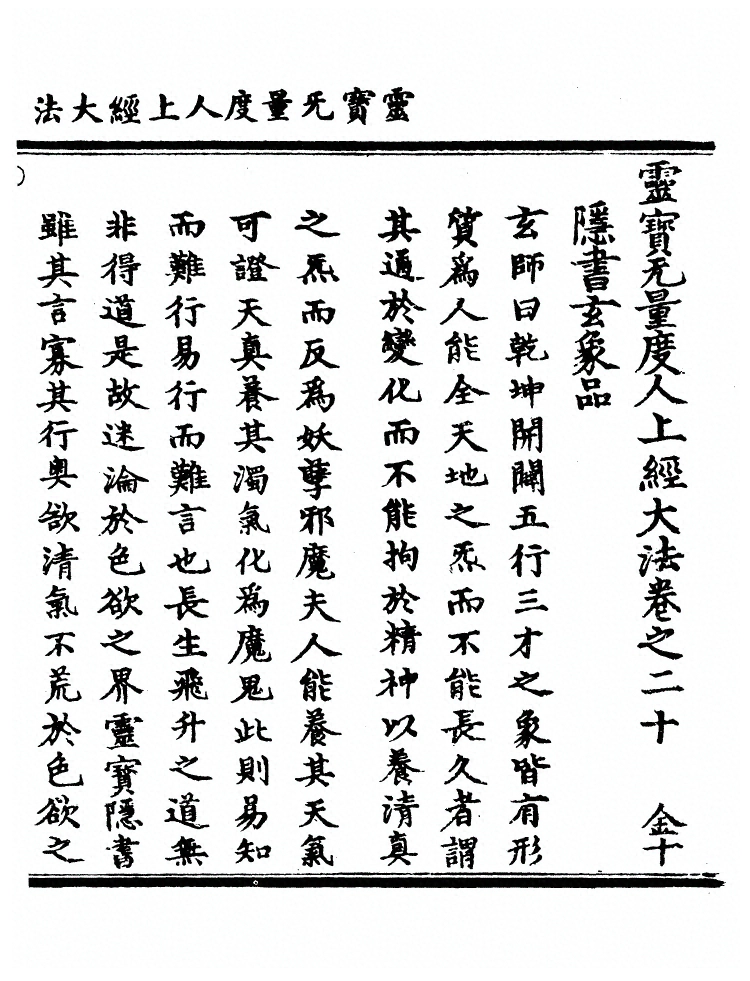 靈寶无量度人上經大法
靈寶无量度人上經大法卷之二十 金十
隱書玄象品
玄師曰乾坤開闢五行三才之象皆有形
質爲人能全天地之炁而不能長久者謂
其適於變化而不能拘於精神以養清真
之炁而反爲妖孽邪魔夫人能養其天氣
可證天真養其濁氣化爲魔鬼此則易知
而難行易行而難言也長生飛升之道無
非得道是故迷淪於色欲之界靈寶隱書
雖其言寡其行奥欲清氣不荒於色欲之